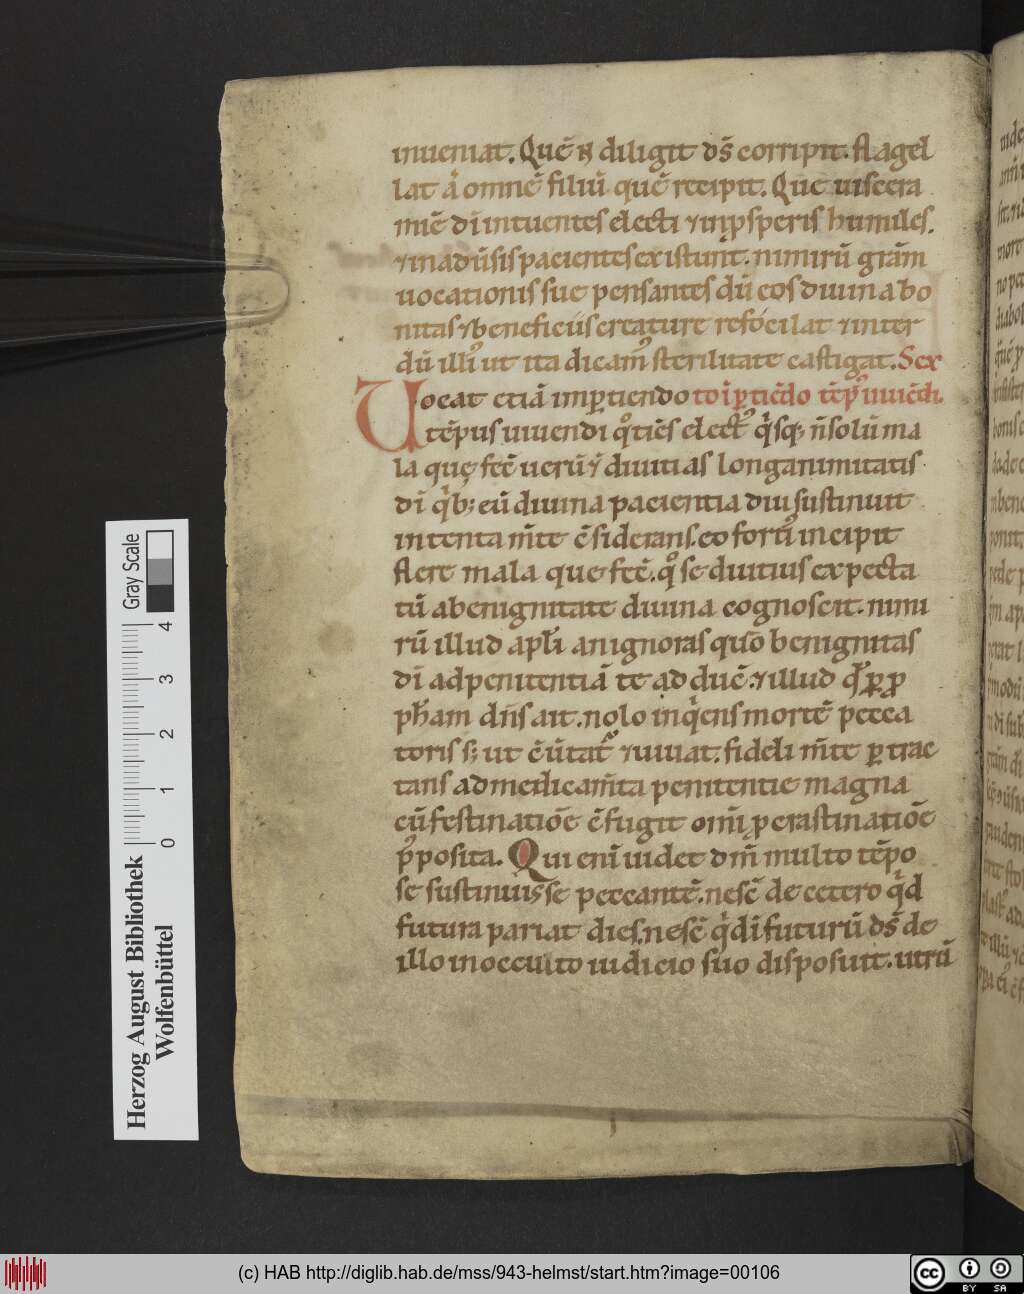 inueniat. Quē n̄ diligit dn̄s corripit. flagel
lat ā omnē filiū quē recipit. Que uiscera
mīe dī intuentes electi ⁊ in ꝓsperis humiles.
⁊ in aduˀsis pacientes existunt. nimirū grām
uocationis sue pensantes dū eos diuina bo
nitas ⁊ beneficiis creature refocilat ⁊ inter
dū illiˀ ut ita dicamˀ sterilitate castigat. Sex
Uocat etiā imꝑtiendo to īꝑtiēdo tēpˀ uiuēdi.
tēpus uiuendi qͦtiēs electˀ qͥsq; n̄ solū ma
la que fec̄ uerū ⁊ diuitias longanimitatis
dī qͥb; eū diuina pacientia diu sustinuit
intenta m̄te c̄siderans. eo fortiˀ incipit
flere mala que fec̄. qͦ se diutius expecta
tū a benignitate diuina cognoscit. nimi
rū illud apl̄i an ignoras quō benignitas
dī ad penitentiā te adducˀ. ⁊ illud qͥ ꝑ ꝓ
ph̄am dn̄s ait. nolo inqͥens mortē pecca
toris s; ut c̄uˀtatˀ ⁊ uiuat. fideli m̄te ꝑtrac
tans ad medicam̄ta penitentie magna
cū festinatiōe c̄fugit omī ꝓcrastinatiōe
p̄posita. Qui enī uidet dn̄m multo tēpo
se sustinuisse peccantē. nesc̄ de cetero qͥd
futura pariat dies. nesc̄ qͥd ī futurū dn̄s de
illo in occulto iudicio suo disposuit. utrū
Gray Scale
0 1 2 3 4
Herzog August Bibliothek
Wolfenbüttel
(c) HAB http://diglib.hab.de/mss/943-helmst/start.htm?image=00106
cc BY SA